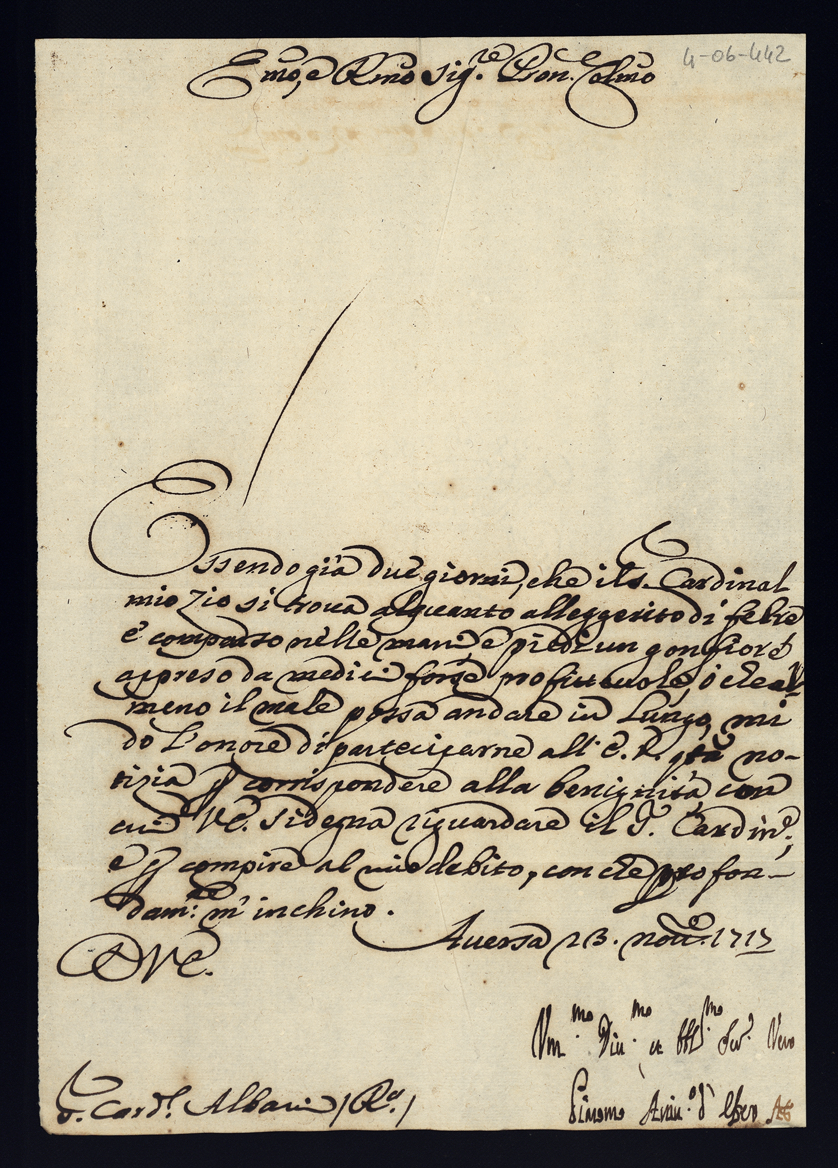 4-06-442
Emo, e Rmo Sig.re Pron. Colmo
Essendo già due giorni, che il S. Cardinal
mio Zio si trova alquanto alleggerito di febre
è comparso nelle mani e piedi un gonfiore
appreso da medici forse profittevole, ò che al
meno il male possa andare in lungo, mi
dò l'onore di parteciparne all'E. V. qta no-
tizia p corrispondere alla benignità con
cui V.E. si degna riguardare il S. Cardin.e,
e p compire al mio debito, con che profon-
dam:te m'inchino.
Aversa 23. nov.e 1717
D V.E.
Vm.mo Div.mo et Obl.mo Ser.e Vero
S. Card.l Albani (Ra.)